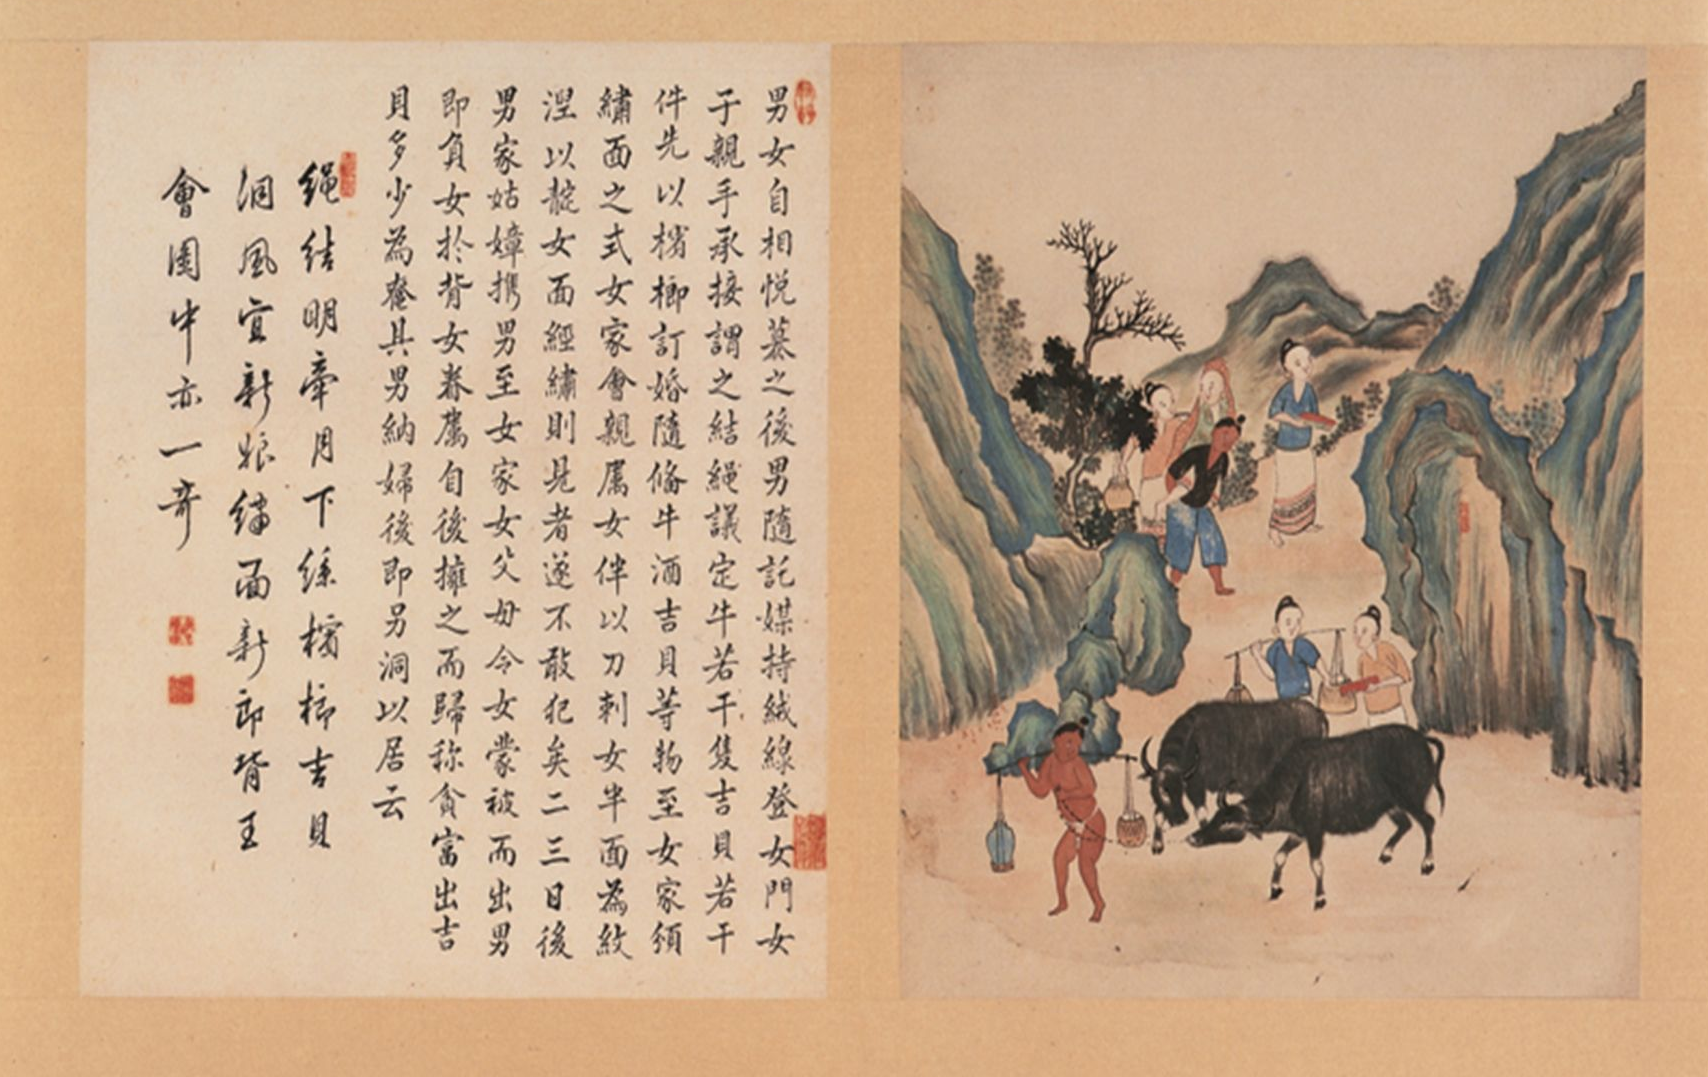 男女自相悅慕之後男隨託媒持絨線登女門女
于親手承接謂之結繩議定牛若干隻吉貝若干
件先以檳榔訂婚隨偹牛酒吉貝等物至女家須
繡面之式女家會親屬女伴以刀刺女半面為紋
涅以靛女面經繡則見者遂不敢犯矣二三日後
男家姑嫜携男至女家女父母令女蒙被而出男
即負女於背女眷屬自後擁之而歸称貧富出吉
貝多少為奩具男納婦後即另洞以居云
繩結明牽月下絲檳榔吉貝
洞風宜新娘繡面新郎背王
會圖中亦一奇